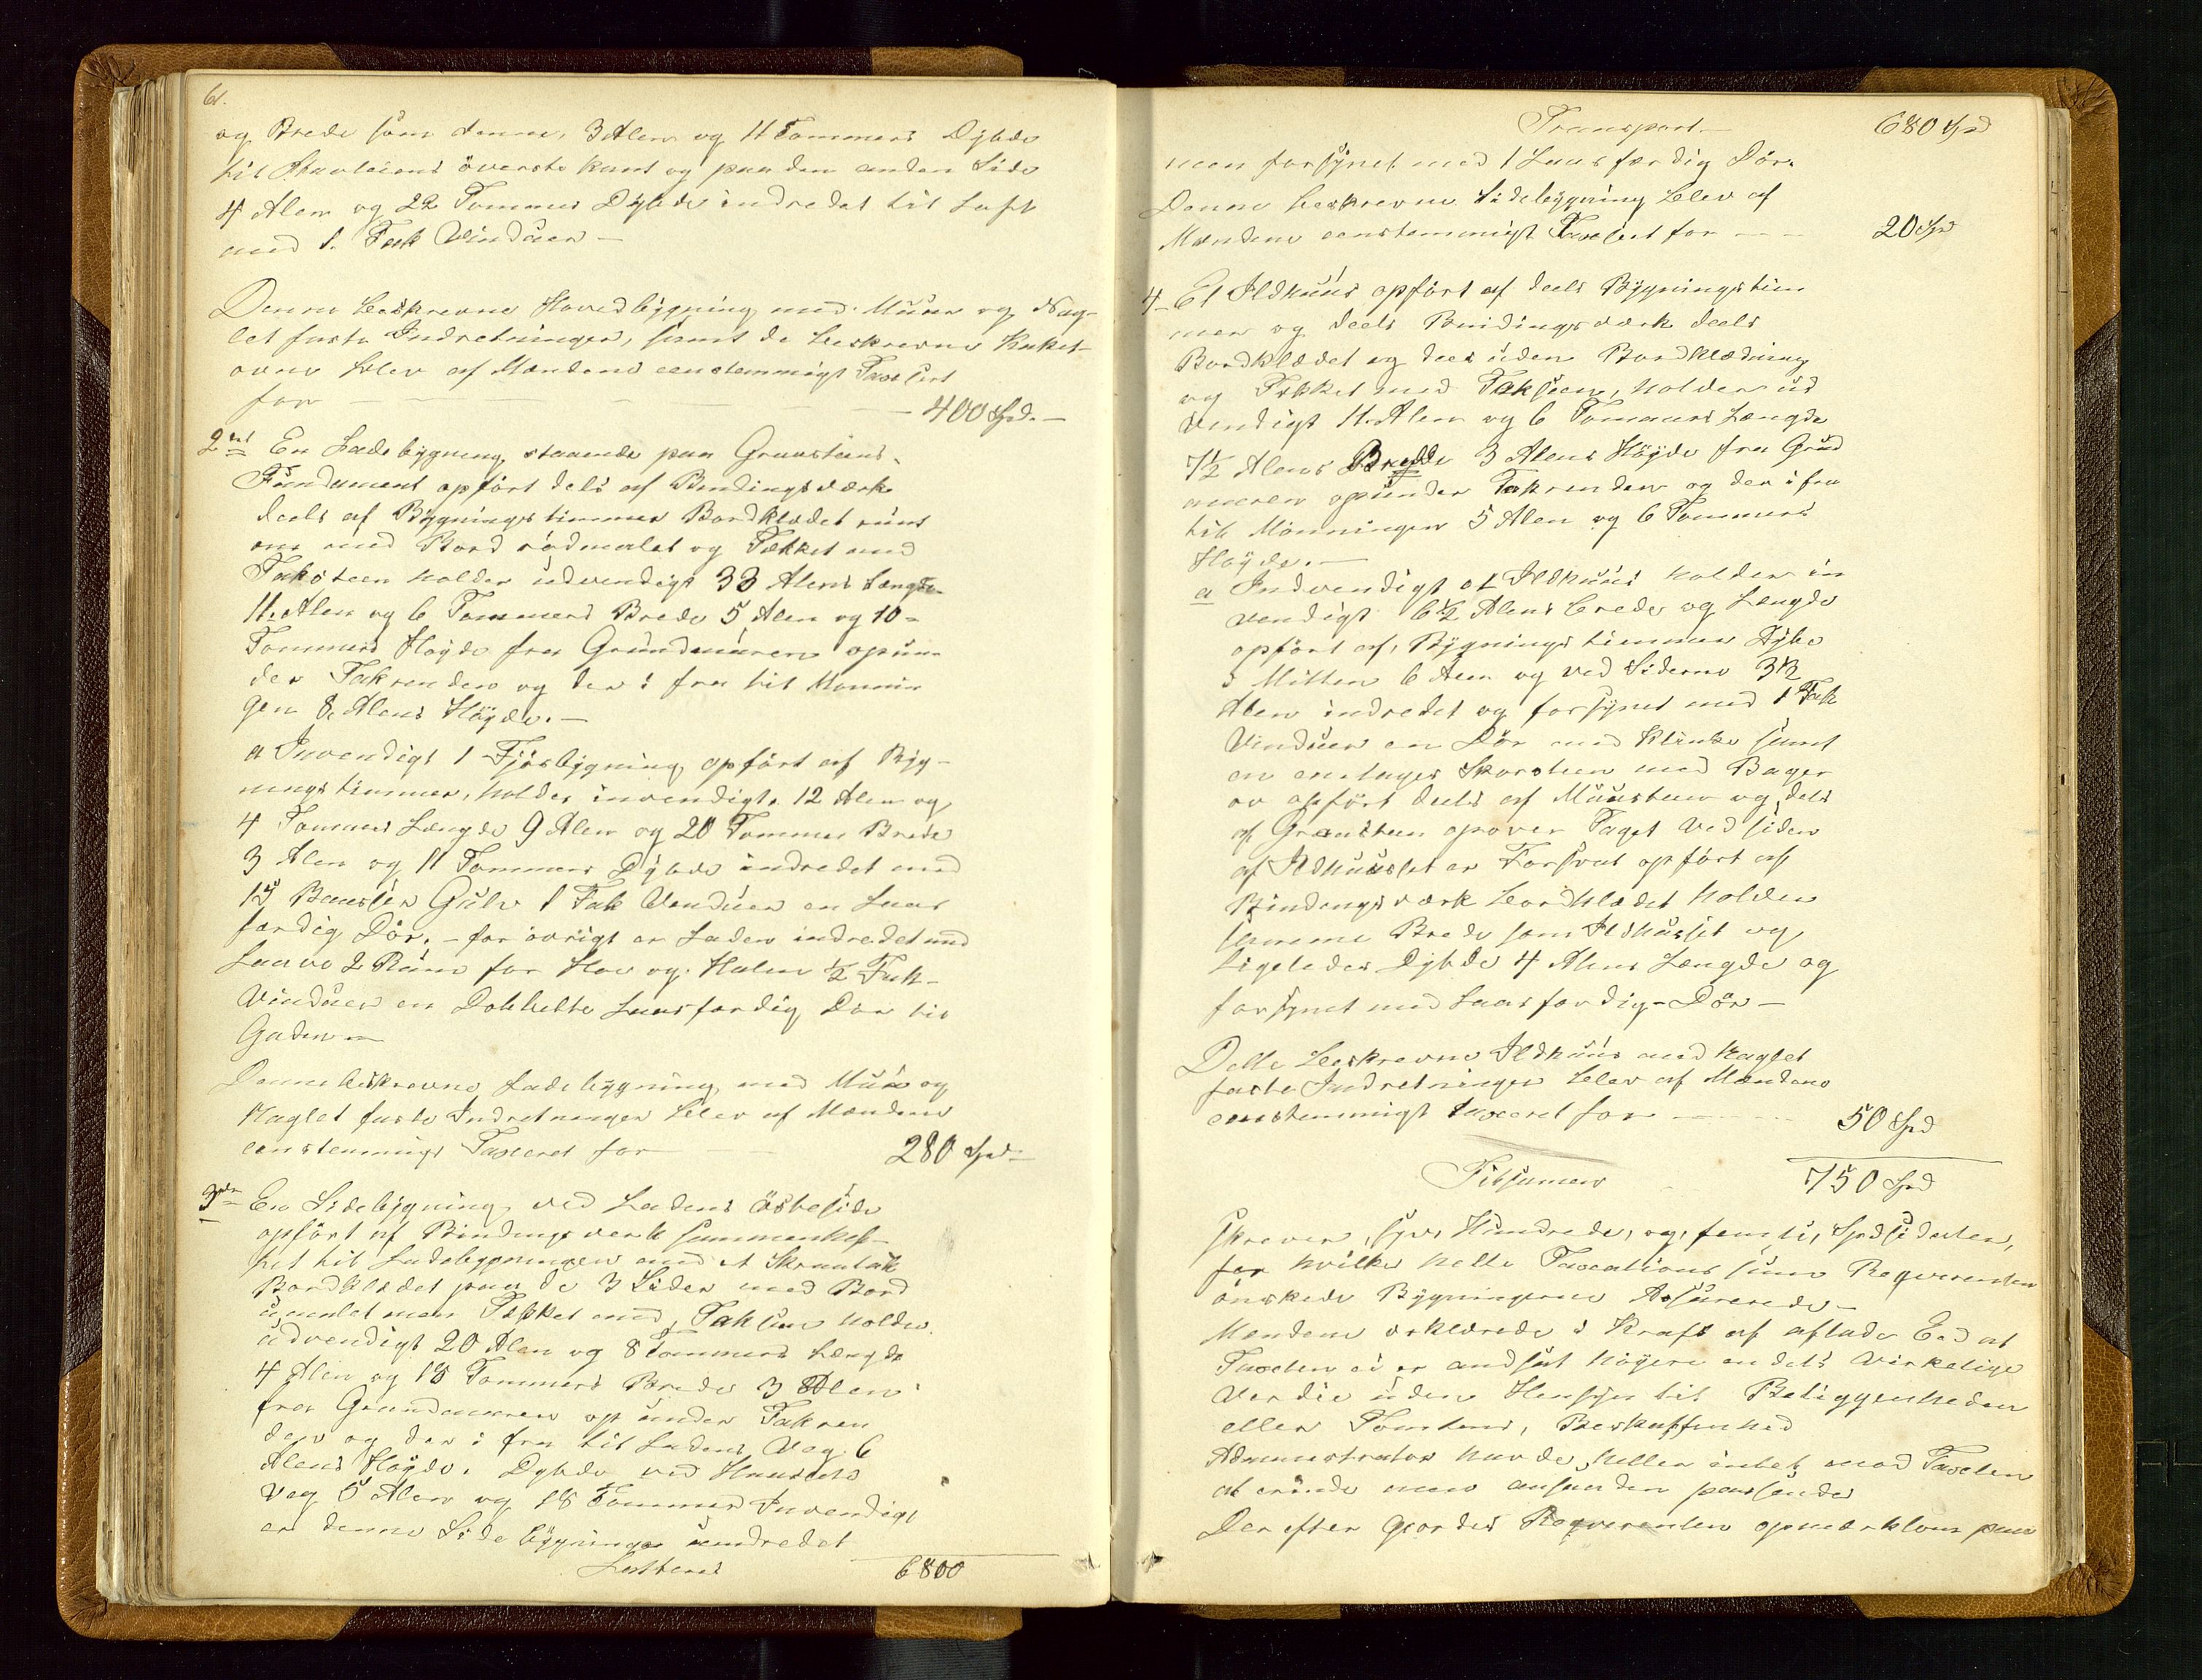 61.
og Brede som denne, 3 Alen og 11 Tommers Dybde
til överste kant og paa den anden Side
4 Alen og 22 Tommer Dybde indredet til Loft
med 1. Fak Vinduer —
Denne beskrevne Hovedbygning med Muur og Nag-
let faste Indretninger, samt de beskrevne Kakel-
ovne blev af Mændene eenstemmigt Taxeret
for — 400 Spd. —
2det En Ladebygning, staaende paa Graasteens
Fundament opfört dels af Bindingsværk
deels af Bygningstimmer Bordklædet runt
om med Bord rödmalet og Tækket med
Taksteen holder udvendigt 33 Alens Længde
11. Alen og 6 Tommers Brede 5 Alen og 10 =
Tommers Höyde fra Grundmuren opun
der Takrenden og der i fra til Mönnin
gen 8. Alens Höyde. —
a Invendigt 1 Fjösbygning opfört af Byg-
ningstimmer, holder invendigt. 12 Alen og
4 Tommers Længde 9 Alen og 20 Tommer Brede
3 Alen og 11 Tommers Dybde indredet med
15 Gulv 1 Fak Vinduer en Laas
færdig Dör. — for övrigt er Laden indredet med
Laave 2 Rum for Höe og Halm 1/2 Fak
Vinduer en Dobbelte Laasfærdig Dör til
Gaden —
Denne beskrevne Ladebygning med Muur og
Naglet faste Indretninger blev af Mændene
eenstemmigt Taxeret for — 280 Spd —
3die En Sidebygning ved Ladens östreside
opfört af Bindingsverk sammenhef-
tet til Ladebygningen med et Skraatak
Bordklædet paa de 3 Sider med Bord
umalet men Tækket med Taksten holder
udvendigt 20 Alen og 8 Tommers Længde
4 Alen og 18 Tommers Brede 3 Alen
fra Grundmuren op under Takren
den og der i fra til Ladens Veg 6
Alens Höyde. Dybde ved
Veg 5 Alen og 18 Tommer Invendigt
er denne Side bygning uindredet
Lateres 680
Transport — 680 Spd
men forsynet med 1 Laasfærdig Dör.
Denne beskrevne Sidebygning blev af
Mændene eenstemmigt Taxeret for — 20 Spd
4 — Et Ildhuus opfört af deels Bygningstim
mer og deels Bindingsværk deels
Bordklædet og deels uden Bordklædning
og Tækket med Taksteen, holder ud
vendigt 11. Alen og 6 Tommers Længde
7 1/2 Alens Bredde 3 Alens Höyde fra Grund
muren opunder Takrenden og der i fra
til Mönningen 5 Alen og 6 Tommers
Höyde. —
a Indvendigt et Ildhuus holder in
vendigt 6 1/2 Alens brede og Længde
opfört af, Bygningstimmer Dybe
i Mitten 6 Alen og ved Siderne 3 1/2
Alen indredet og forsynet med 1 Fak
Vinduer en Dör med Klinke samt
en Skorsteen med Bager
ov opfört deels af Muursteen og dels
af Graasteen opover Taget Ved siden
af Ildhuuset er Forsval opfört af
Bindingsværk bordklædet holder
samme Brede som Ildhuuset og
Ligeledes Dybde 4 Alens Længde og
forsynet med Laasfærdig Dör —
Dette beskrevne Ildhuus med Naglet
faste Indretninger blev af Mændene
eenstemmigt taxeret for — 50 Spd
Tilsamen 750 Spd
skrever, syv, Hundrede, og, femti, Spdsidaler,
for hvilke hele Taxations sum Reqvirenten
önskede Bygningerne Assurerede —
Mændene erklærede i Kraft af aflagde Eed at
Taxten ei er andsat höyere en dets Virkelige
Verdie uden Hensyn til Beliggenheden
eller Tomtens, Beskaffenhed
Administrator havde heller intet mod Taxten
at erindre men ansaa den passende
Der efter Gjordes Reqvirenten opmærksom paa